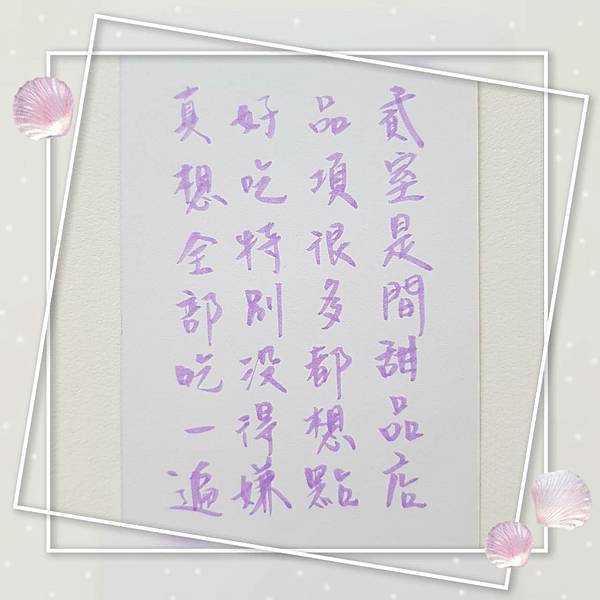 貳室是間甜品店
品項很多都想點
好吃特別沒得嫌
真想全部吃一遍